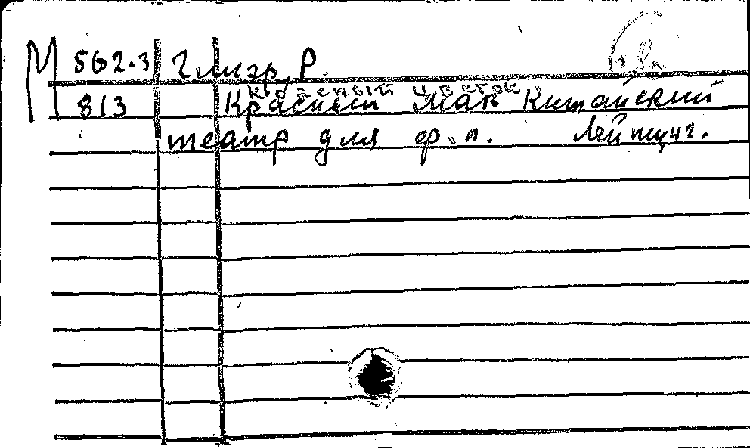 М 562.3 Глиэр, Р.
(Красный цветок)
813 Красный мак Китайский
театр для ф.п. Лейпциг.